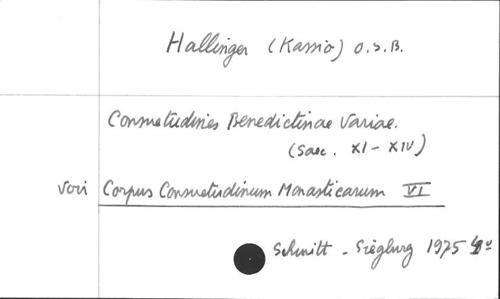 Hallinger (Kassio) O.S.B.
Consuetudines Benedictinae Variae.
(Saec. XI - XIV)
voir Corpus Consuetudinum Monasticarum VI
Schmitt - Siegburg 1975